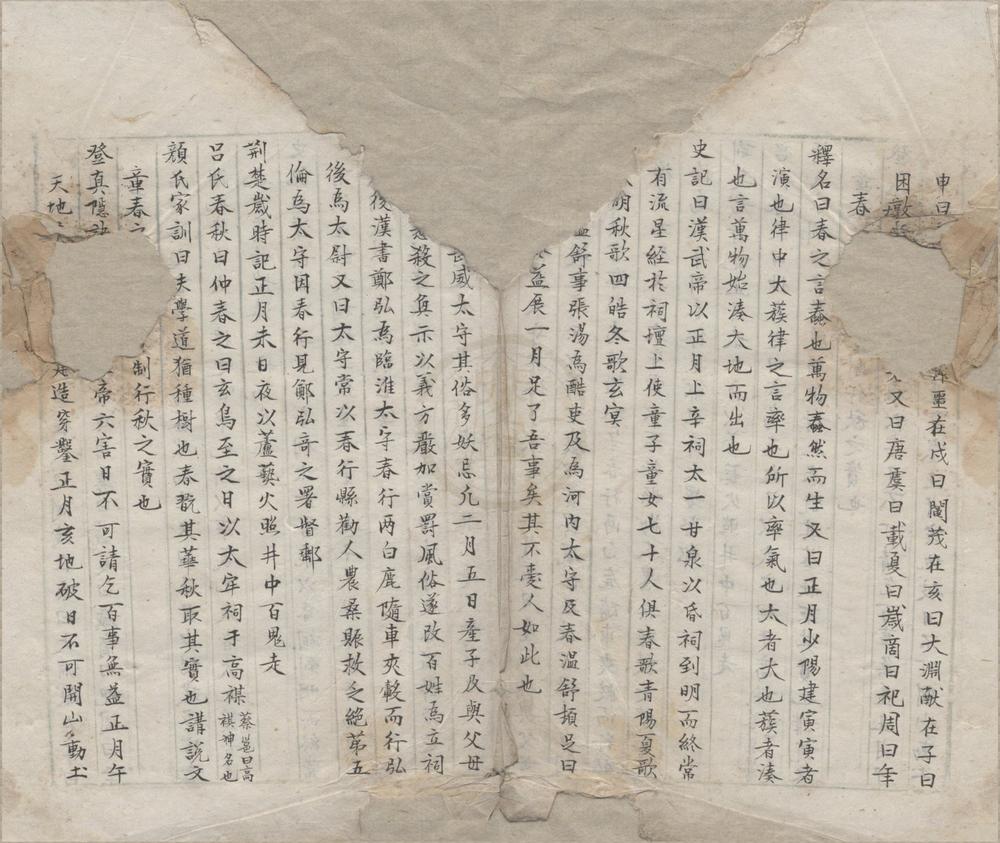 申曰 㴉䍿在戌曰閹茂在亥曰大淵獻在子曰
困敦 又曰唐虞曰載夏曰歲商曰祀周曰年
春
釋名曰春之言蠢也萬物蠢然而生又曰正月少陽建寅寅者
演也律中太蔟律之言率也所以率氣也太者大也蔟者湊
也言萬物始湊大地而出也
史記曰漢武帝以正月上辛祠太一甘泉以昏祠到明而終常
有流星經於祠壇上使童子童女七十人俱春歌青陽夏歌
朱明秋歌四皓冬歌玄冥
溫舒事張湯為酷吏及為河內太守及春溫舒頓足曰
益展一月足了吾事矣其不愛人如此也
威太守其俗多妖忌凡二月五日產子及與父母
悉殺之奐示以義方嚴加賞罰風俗遂改百姓為立祠
後漢書鄭弘為臨淮太守春行兩白鹿隨車夾轂而行弘
後為太尉又曰太守常以春行縣勸人農桑賑救乏絕第五
倫為太守因春行見鄭弘奇之署督郵
荊楚歲時記正月未日夜以蘆蓺火照井中百鬼走
呂氏春秋曰仲春之日玄鳥至之日以太牢祠于高禖蔡邕曰高禖神名也
顏氏家訓曰夫學道猶種樹也春翫其華秋取其實也講說文
章春 制行秋之實也
登真隱訣 帝六害日不可請乞百事無益正月午
天地 造穿鑿正月亥地破日不可開山動土